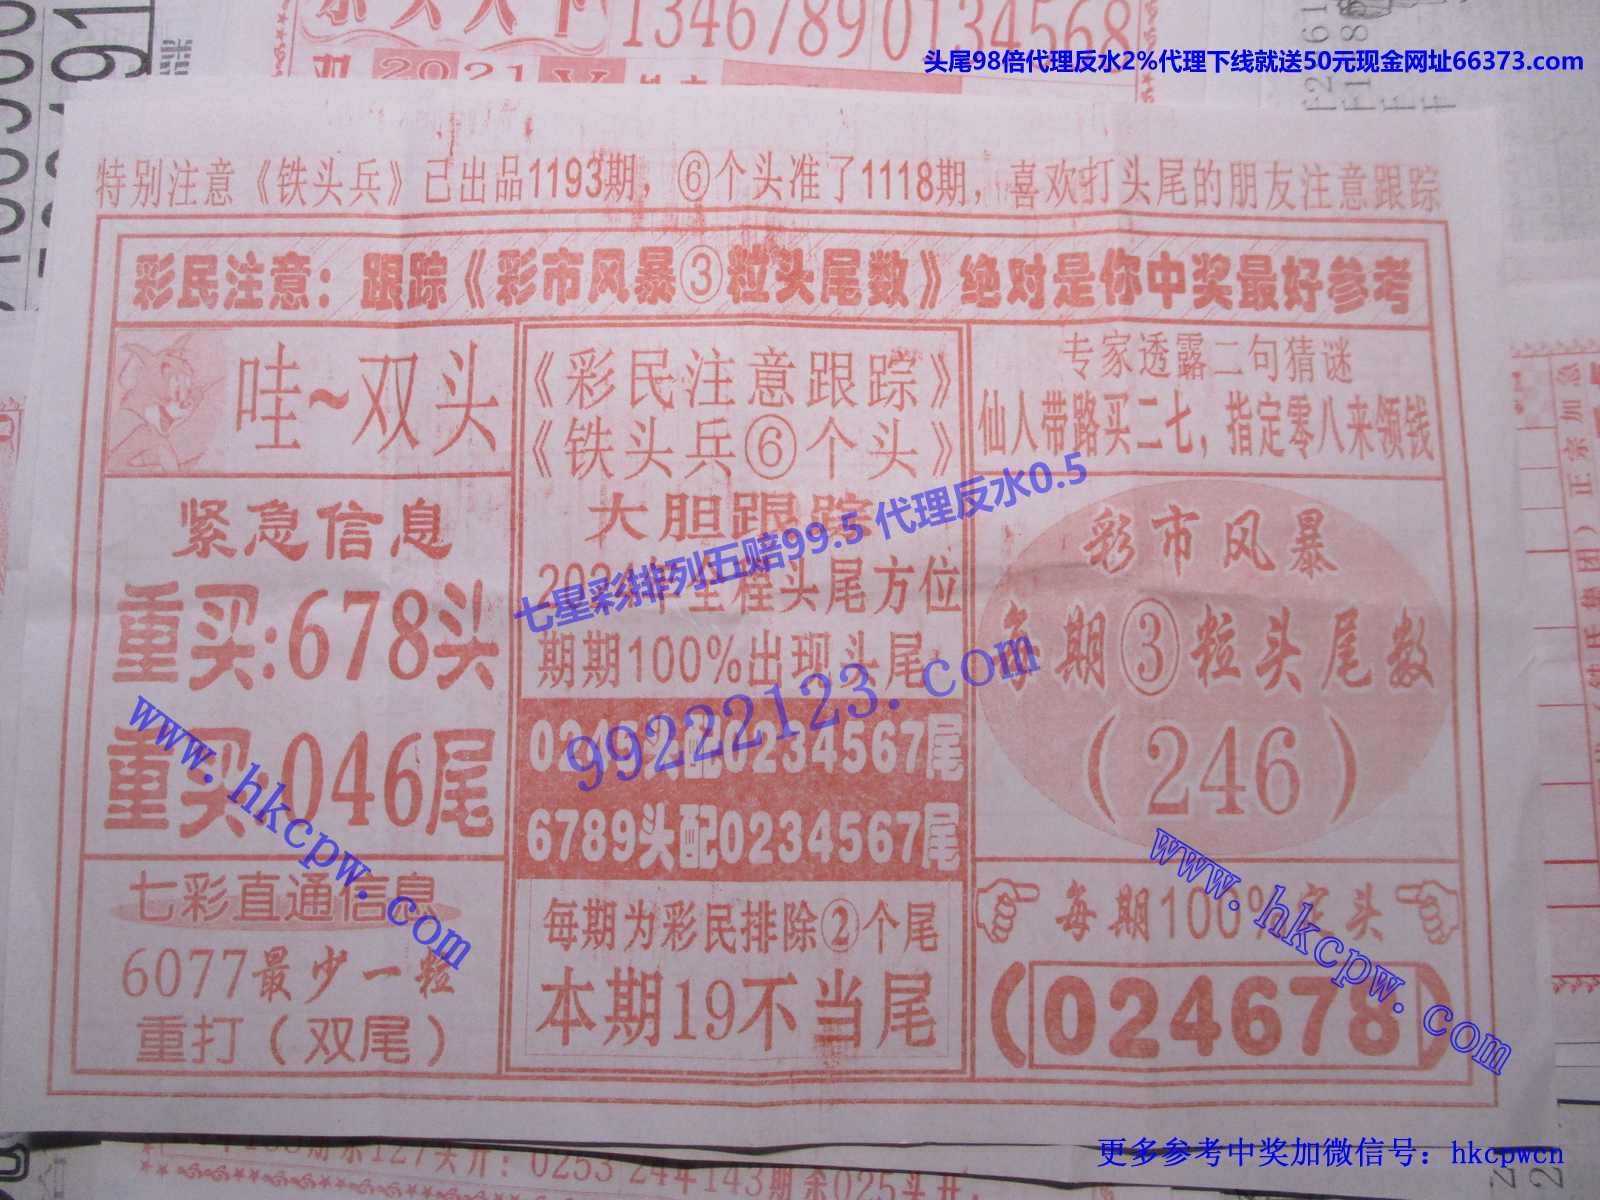 13467890134568
头尾98倍代理反水2%代理下线就送50元现金网址66373.com
特别注意《铁头兵》己出品1193期，⑥个头准了1118期，喜欢打头尾的朋友注意跟踪
彩民注意：跟踪《彩市风暴③粒头尾数》绝对是你中奖最好参考
哇~双头
紧急信息
重买:678头
重买:046尾
七彩直通信息
6077最少一粒
重打（双尾）
《彩民注意跟踪》
《铁头兵⑥个头》
大胆跟踪
头尾方位
期期100%出现头尾
头配0234567尾
6789头配0234567尾
每期为彩民排除②个尾
本期19不当尾
专家透露二句猜谜
仙人带路买二七，指定零八来领钱
彩市风暴
每期③粒头尾数
（246）
每期100%定头
（024678）
七星彩排列五赔99.5 代理反水0.5
99222123.com
www.hkcpw.com
www.hkcpw.com
更多参考中奖加微信号：hkcpwcn